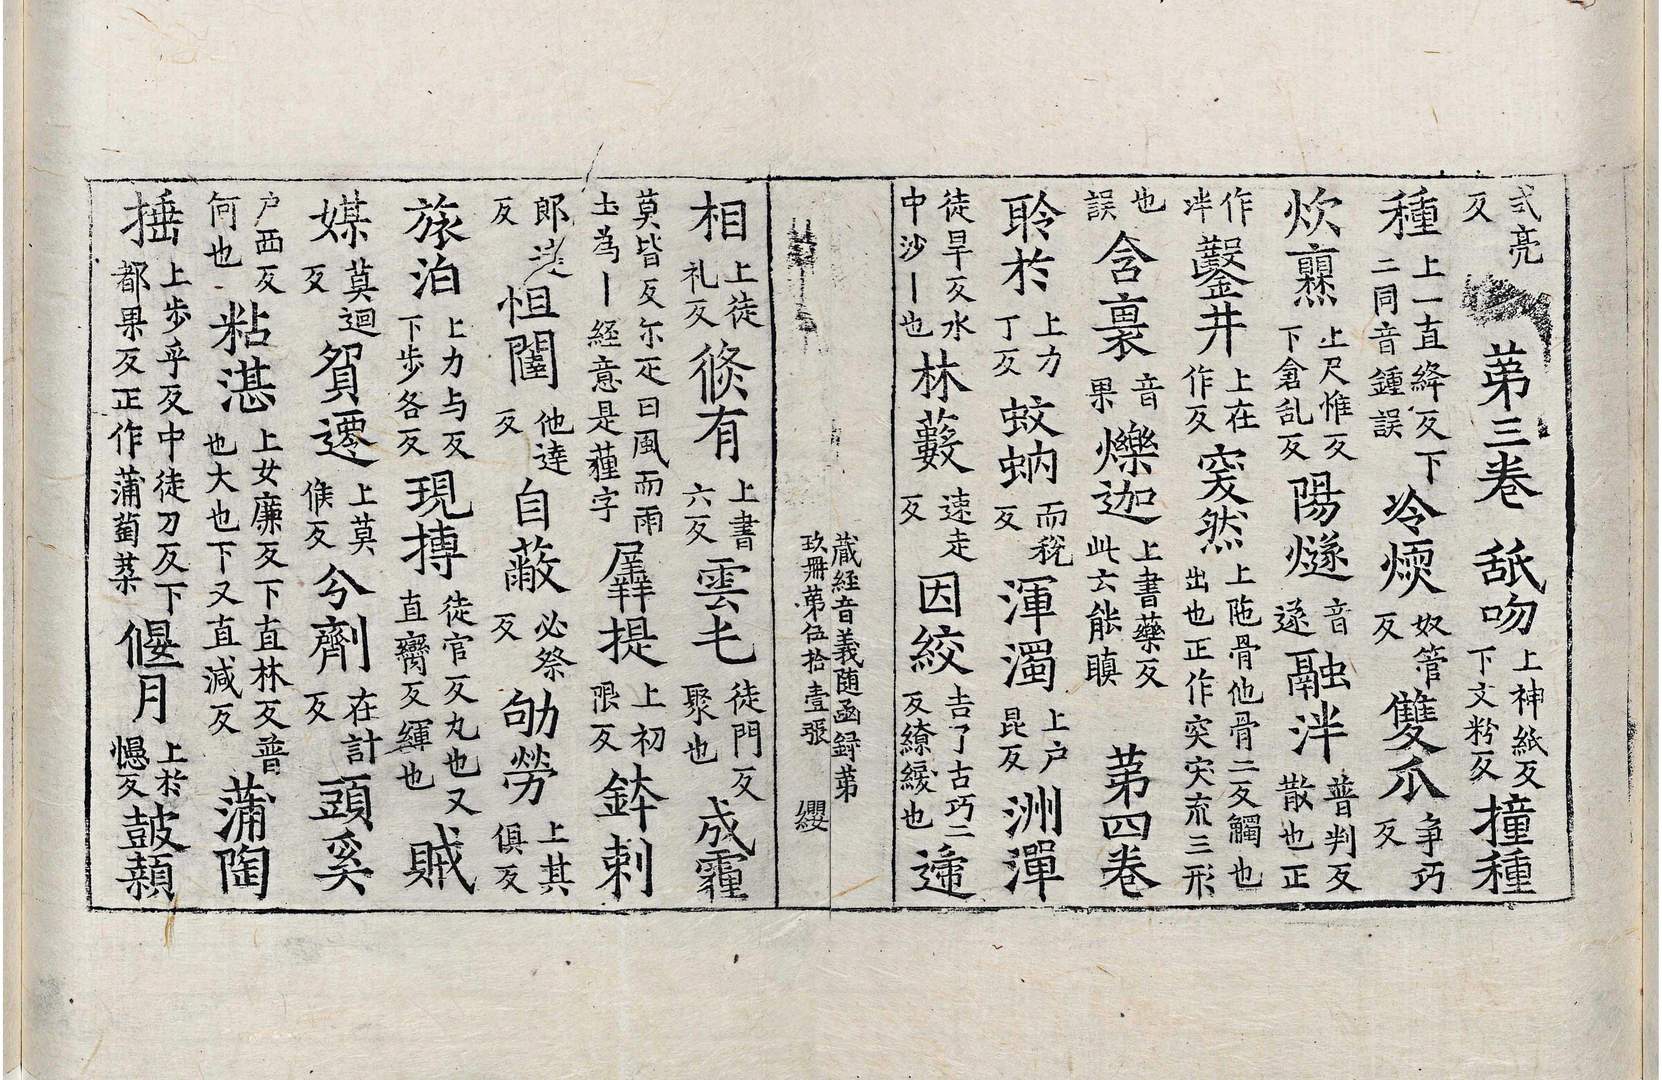 式亮反 第三卷 舐吻上神紙反下文粉反撞種
種上一直絳反下二同音鍾誤冷煗奴管反雙爪爭巧反
炊爨上尺惟反下倉乱反陽燧音遂融泮普判反散也正
作泮鑿井上在作反突然上陁骨他骨二反觸也出也正作突㕛㐬三形
也誤含裹音果爍迦上書藥反此云能瞋 第四卷
聆於上力丁反蚊蚋而稅反渾濁上户昆反洲潬
徒旱反水中沙丨也林藪速走反因絞吉了古巧二反繚綟也遆
藏經音義随函録第玖冊第伍拾壹張 纓
相上徒礼反倏有上書六反雲屯徒門反聚也成霾
莫皆反尓疋曰風而雨土為丨經意是薶字羼提上初限反鉢剌
郎達反怛闥他達反自蔽必祭反劬勞上其俱反
旅泊上力与反下步各反現摶徒官反丸也又直臠反縪也賊
媒莫迴反貿遷上莫候反分劑在計反頭奚
户西反何也粘湛上女廉反下直林反普也大也下又直減反蒲陶
捶上步乎反中徒刀反下都果反正作蒲萄菓偃月上於幰反皷顙